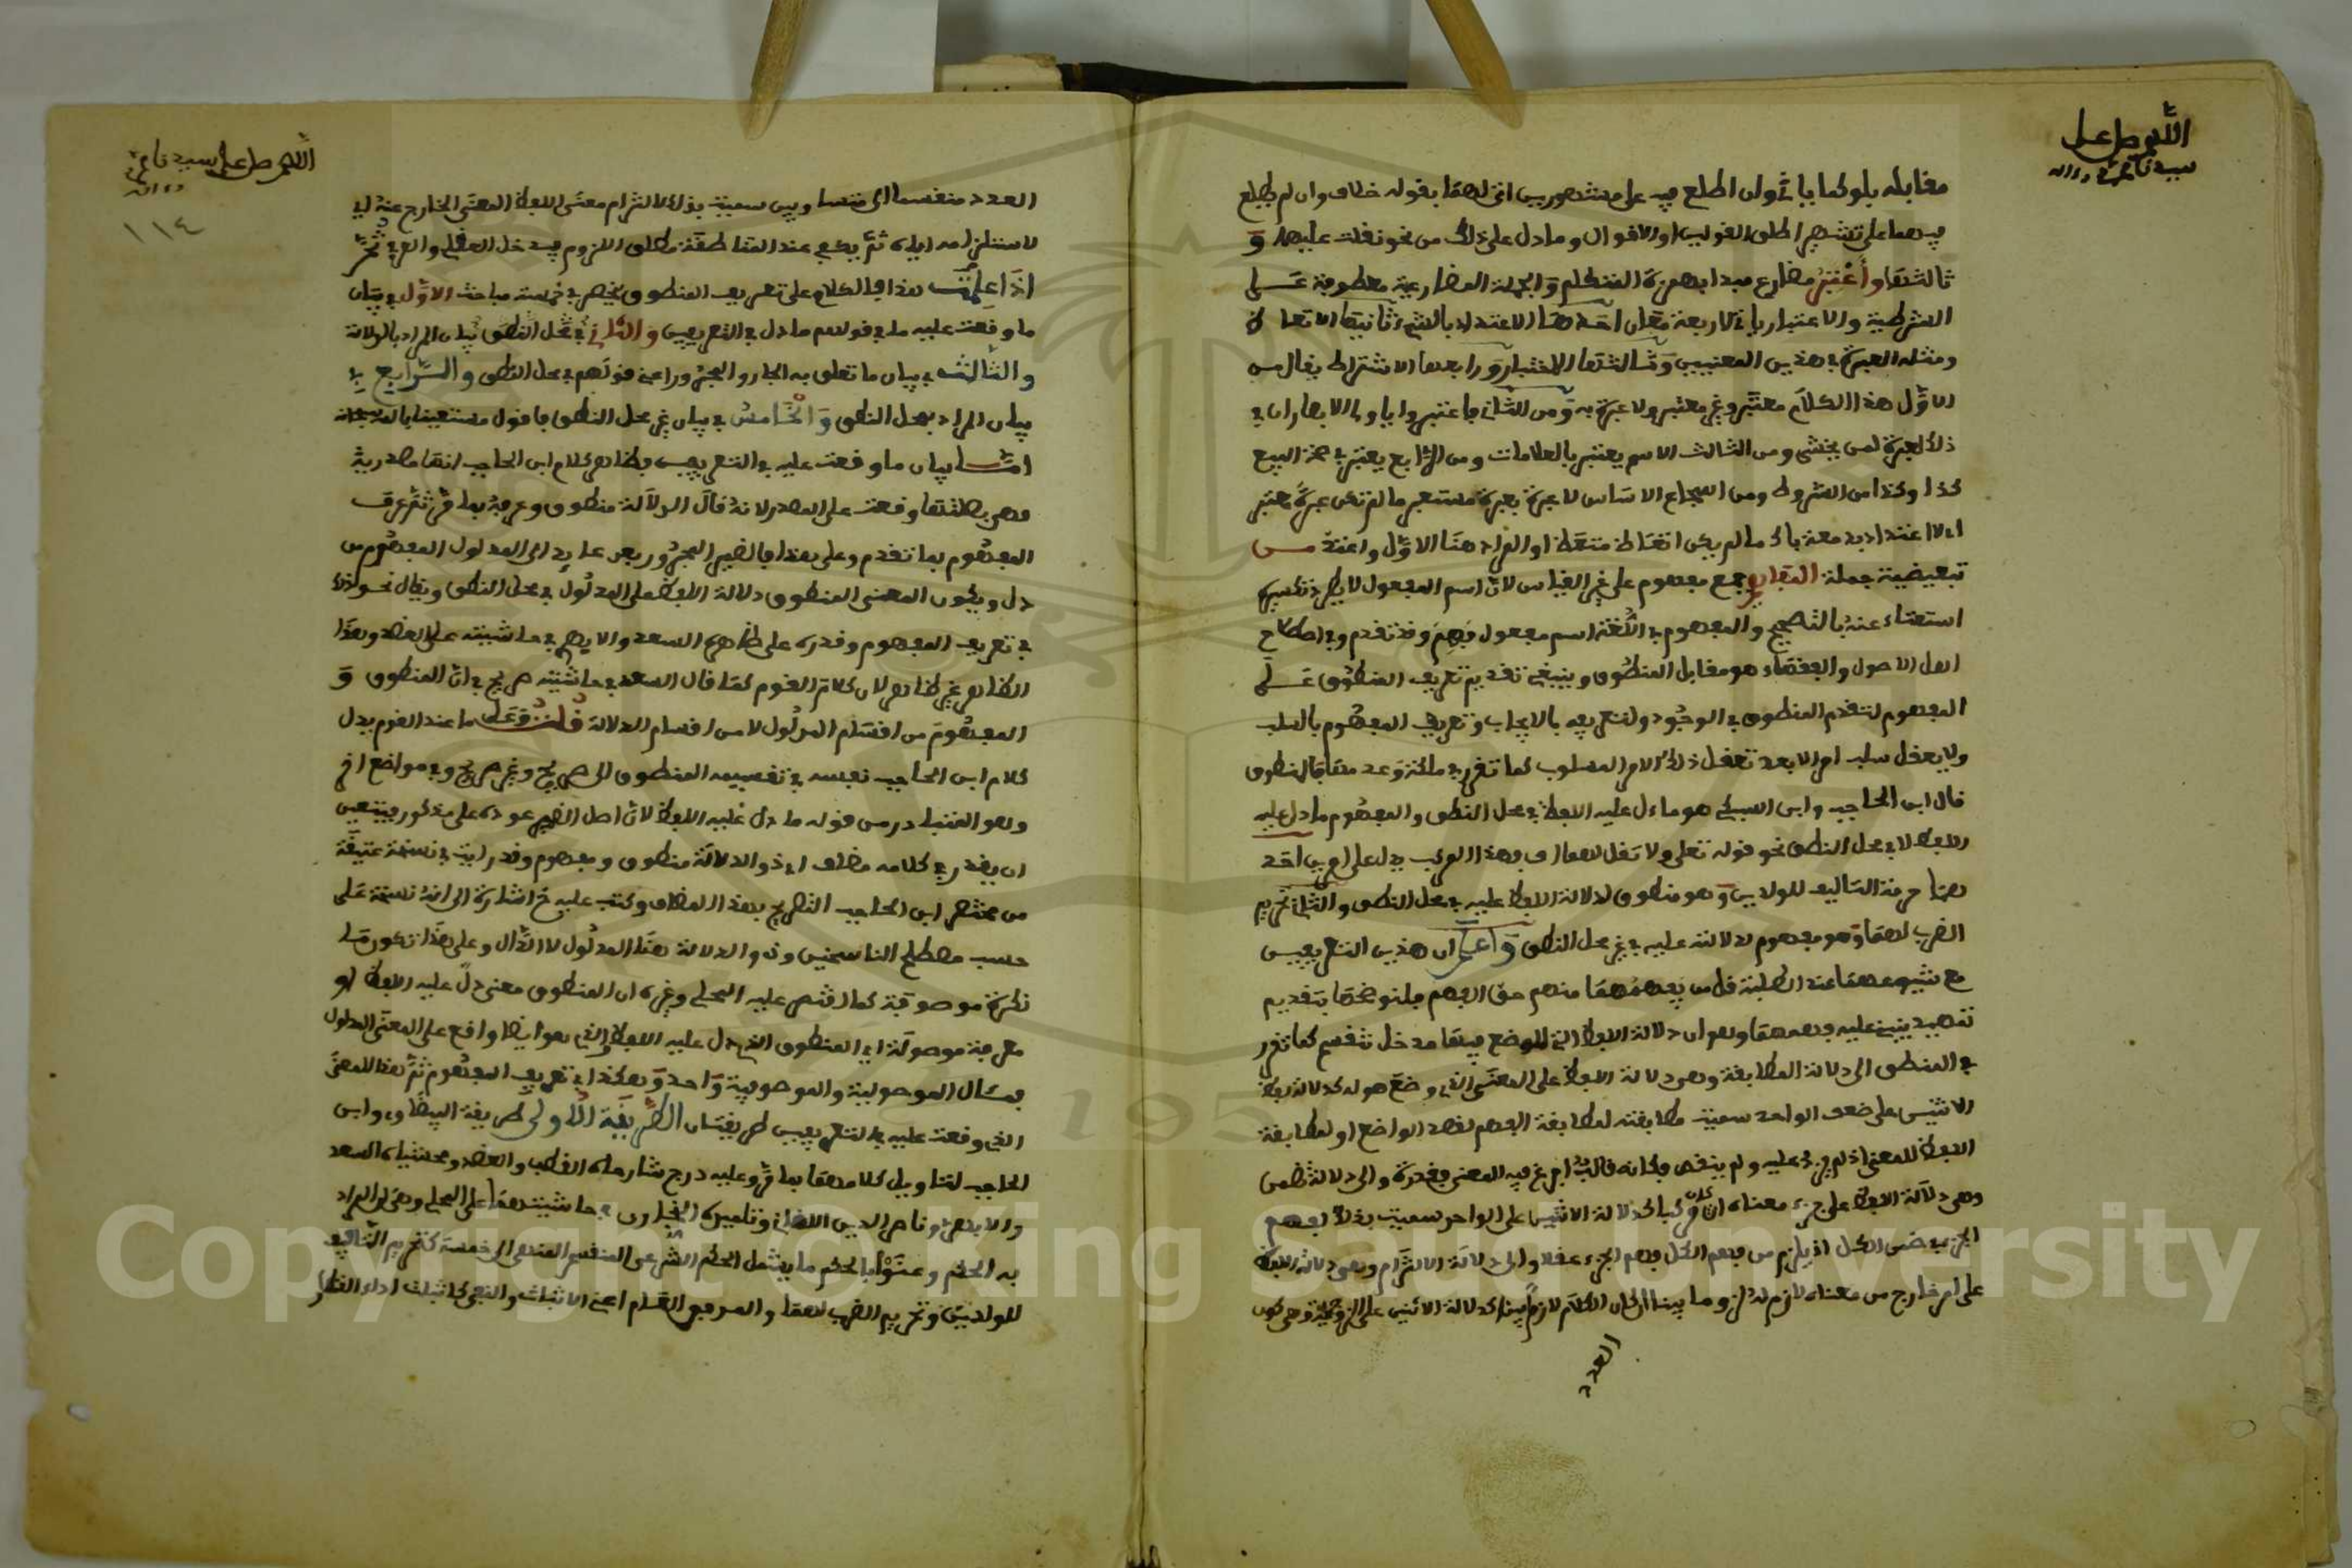 اللهم صل على
سيدنا محمد وآله
مقابله بلو كما ياتي وان اطلع فيه على مشهورين اتى لهما بقوله خلاف وان لم يطلع
فيهما على تشهير اطلق القولين او الاقوال وما دل على ذلك من نحو نقلت عليهما و
ثالثها وأعتبر مضارع مبدا بهمزة المتكلم والجملة المضارعية معطوفة على
الشرطية والاعتبار ياتي لاربعة معان احدها الاعتداد بالشيء ثانيها الاتعاظ
ومثله العبرة في هذين المعنيين وثالثها الاختبار ورابعها الاشتراط يقال من
الاول هذا الكلام معتبر وغير معتبر ولا عبرة به ومن الثاني فاعتبروا يا اولي الابصار ان في
ذلك لعبرة لمن يخشى ومن الثالث الاسم يعتبر بالعلامات ومن الرابع يعتبر في صحة البيع
كذا وكذا من الشروط ومن اسجاع الاساس لا عبرة بعبرة مستعبر ما لم تكن عبرة معتبر
اي لا اعتداد بدمعة باك ما لم يكن اتعاظ متعظ او المراد هنا الاول واعتد من
تبعيضية جملة المفاهيم جمع مفهوم على غير القياس لان اسم المفعول لا يطرد تكسيره
استغناء عنه بالتصحيح والمفهوم في اللغة اسم مفعول فهم وقد تقدم وفي اصطلاح
اهل الاصول والفقهاء هو مقابل المنطوق وينبغي تقديم تعريف المنطوق على
المفهوم لتقدم المنطوق في الوجود ولتعريفه بالايجاب وتعريف المفهوم بالسلب
ولا يعقل سلب امر الا بعد تعقل ذلك الامر المسلوب كما تقرر في ملكة وعدمها فالمنطوق
قال ابن الحاجب وابن السبكي هو ما دل عليه اللفظ في محل النطق والمفهوم ما دل عليه
اللفظ لا في محل النطق نحو قوله تعلى ولا تقل لهما اف فهذا المركب يدل على امرين احد
هما حرمة التافيف للوالدين وهو منطوق لدلالة اللفظ عليه في محل النطق والثاني تحريم
الضرب لهما وهو مفهوم لدلالته عليه في غير محل النطق واعلم ان هذين التعريفين
مع شيوعهما عند الطلبة قل من يفهمهما منهم حق الفهم فلنوضحهما بتقديم
تمهيد ينبني عليه فهمهما وهو ان دلالة اللفظ التي للوضع فيها مدخل تنقسم كما تقرر
في المنطق الى دلالة المطابقة وهي دلالة اللفظ على المعنى الذي وضع هو له كدلالة لفظ
الاثنين على ضعف الواحد سميت مطابقة لمطابقة الفهم لقصد الواضع او لمطابقة
اللفظ للمعنى اذ لم يزد عليه ولم ينقص فكانه قالب افرغ فيه المعنى بقدره والى دلالة تضمن
وهي دلالة اللفظ على جزء معناه ان كان مركبا كدلالة الاثنين على الواحد سميت بذلك لفهم
الجزء في ضمن الكل اذ يلزم من فهم الكل فهم الجزء عقلا والى دلالة الالتزام وهي دلالة اللفظ
على امر خارج من معناه لازم له لزوما بينا كدلالة الاثنين على الزوجية وهي كون
العدد
اللهم صل على سيدنا محمد
وآله
١١٤
العدد منقسما الى متساويين سميت بذلك لالتزام معنى اللفظ المعنى الخارج عنه اي
لاستلزامه اياه ثم يكفي عند المناطقة مطلق اللزوم فيدخل العقلي والعرفي ثم
اذا علمت هذا فالكلام على تعريف المنطوق ينحصر في خمسة مباحث الاول في بيان
ما وقعت عليه ما في قولهم ما دل في التعريفين والثاني في بيان المراد بالدلالة
والثالث في بيان ما تعلق به الجار والمجرور اعني قولهم في محل النطق والرابع في
بيان المراد بمحل النطق والخامس في بيان غير محل النطق فاقول مستعينا بالله سبحانه
اما بيان ما وقعت عليه في التعريفين فظاهر كلام ابن الحاجب انها مصدرية
فهي بصلتها وقعت على المصدر لانه قال الدلالة منطوق وعرفه بما مر ثم عرف
المفهوم بما تقدم وعلى هذا فالضمير المجرور بعلى عايد الى المدلول المفهوم من
دل ويكون المعنى المنطوق دلالة اللفظ على المدلول في محل النطق ويقال نحو ذلك
في تعريف المفهوم وقدره على ظاهره السعد والابهري في حاشيته على العضد وهذا
الظاهر غير ظاهر لان كلام القوم كما قال السعد في حاشيته صريح في ان المنطوق و
المفهوم من اقسام المدلول لا من اقسام الدلالة قلت وعلى ما عند القوم يدل
كلام ابن الحاجب نفسه في تقسيمه المنطوق الى صريح وغير صريح وفي مواضع اخر
وهو المتبادر من قوله ما دل عليه اللفظ لان اصل الضمير عوده على مذكور فيتعين
ان يقدر في كلامه مضاف اي ذو الدلالة منطوق ومفهوم وقد رايت في نسخة عتيقة
من مختصر ابن الحاجب التصريح بهذا المضاف وكتب عليه خ اشارة الى انه نسخة على
حسب مصطلح الناسخين وذو الدلالة هنا المدلول لا الدال وعلى هذا تكون ما
نكرة موصوفة كما اقتصر عليه المحلي وغيره اي المنطوق معنى دل عليه اللفظ او
معرفة موصولة اي المنطوق الذي دل عليه اللفظ والذي هو ايضا واقع على المعنى المدلول
فمآل الموصولية والموصوفية واحد وهكذا في تعريف المفهوم ثم هذا المعنى
الذي وقعت عليه في التعريفين طريقتان الطريقة الاولى طريقة البيضاوي وابن
الحاجب لتاويل كلامهما بما مر وعليه درج شارحاه القطب والعضد ومحشياه السعد
والابهري وناصر الدين اللقاني وتلميذه البخاري في حاشيتهما على المحلي وهي ان المراد
به الحكم وعنوا بالحكم ما يشمل الحكم الشرعي المنقسم الى خمسة كتحريم التافيف
للوالدين وتحريم الضرب لهما والعرفي العام اعني الاثبات والنفي كاثبات اداء القنطار